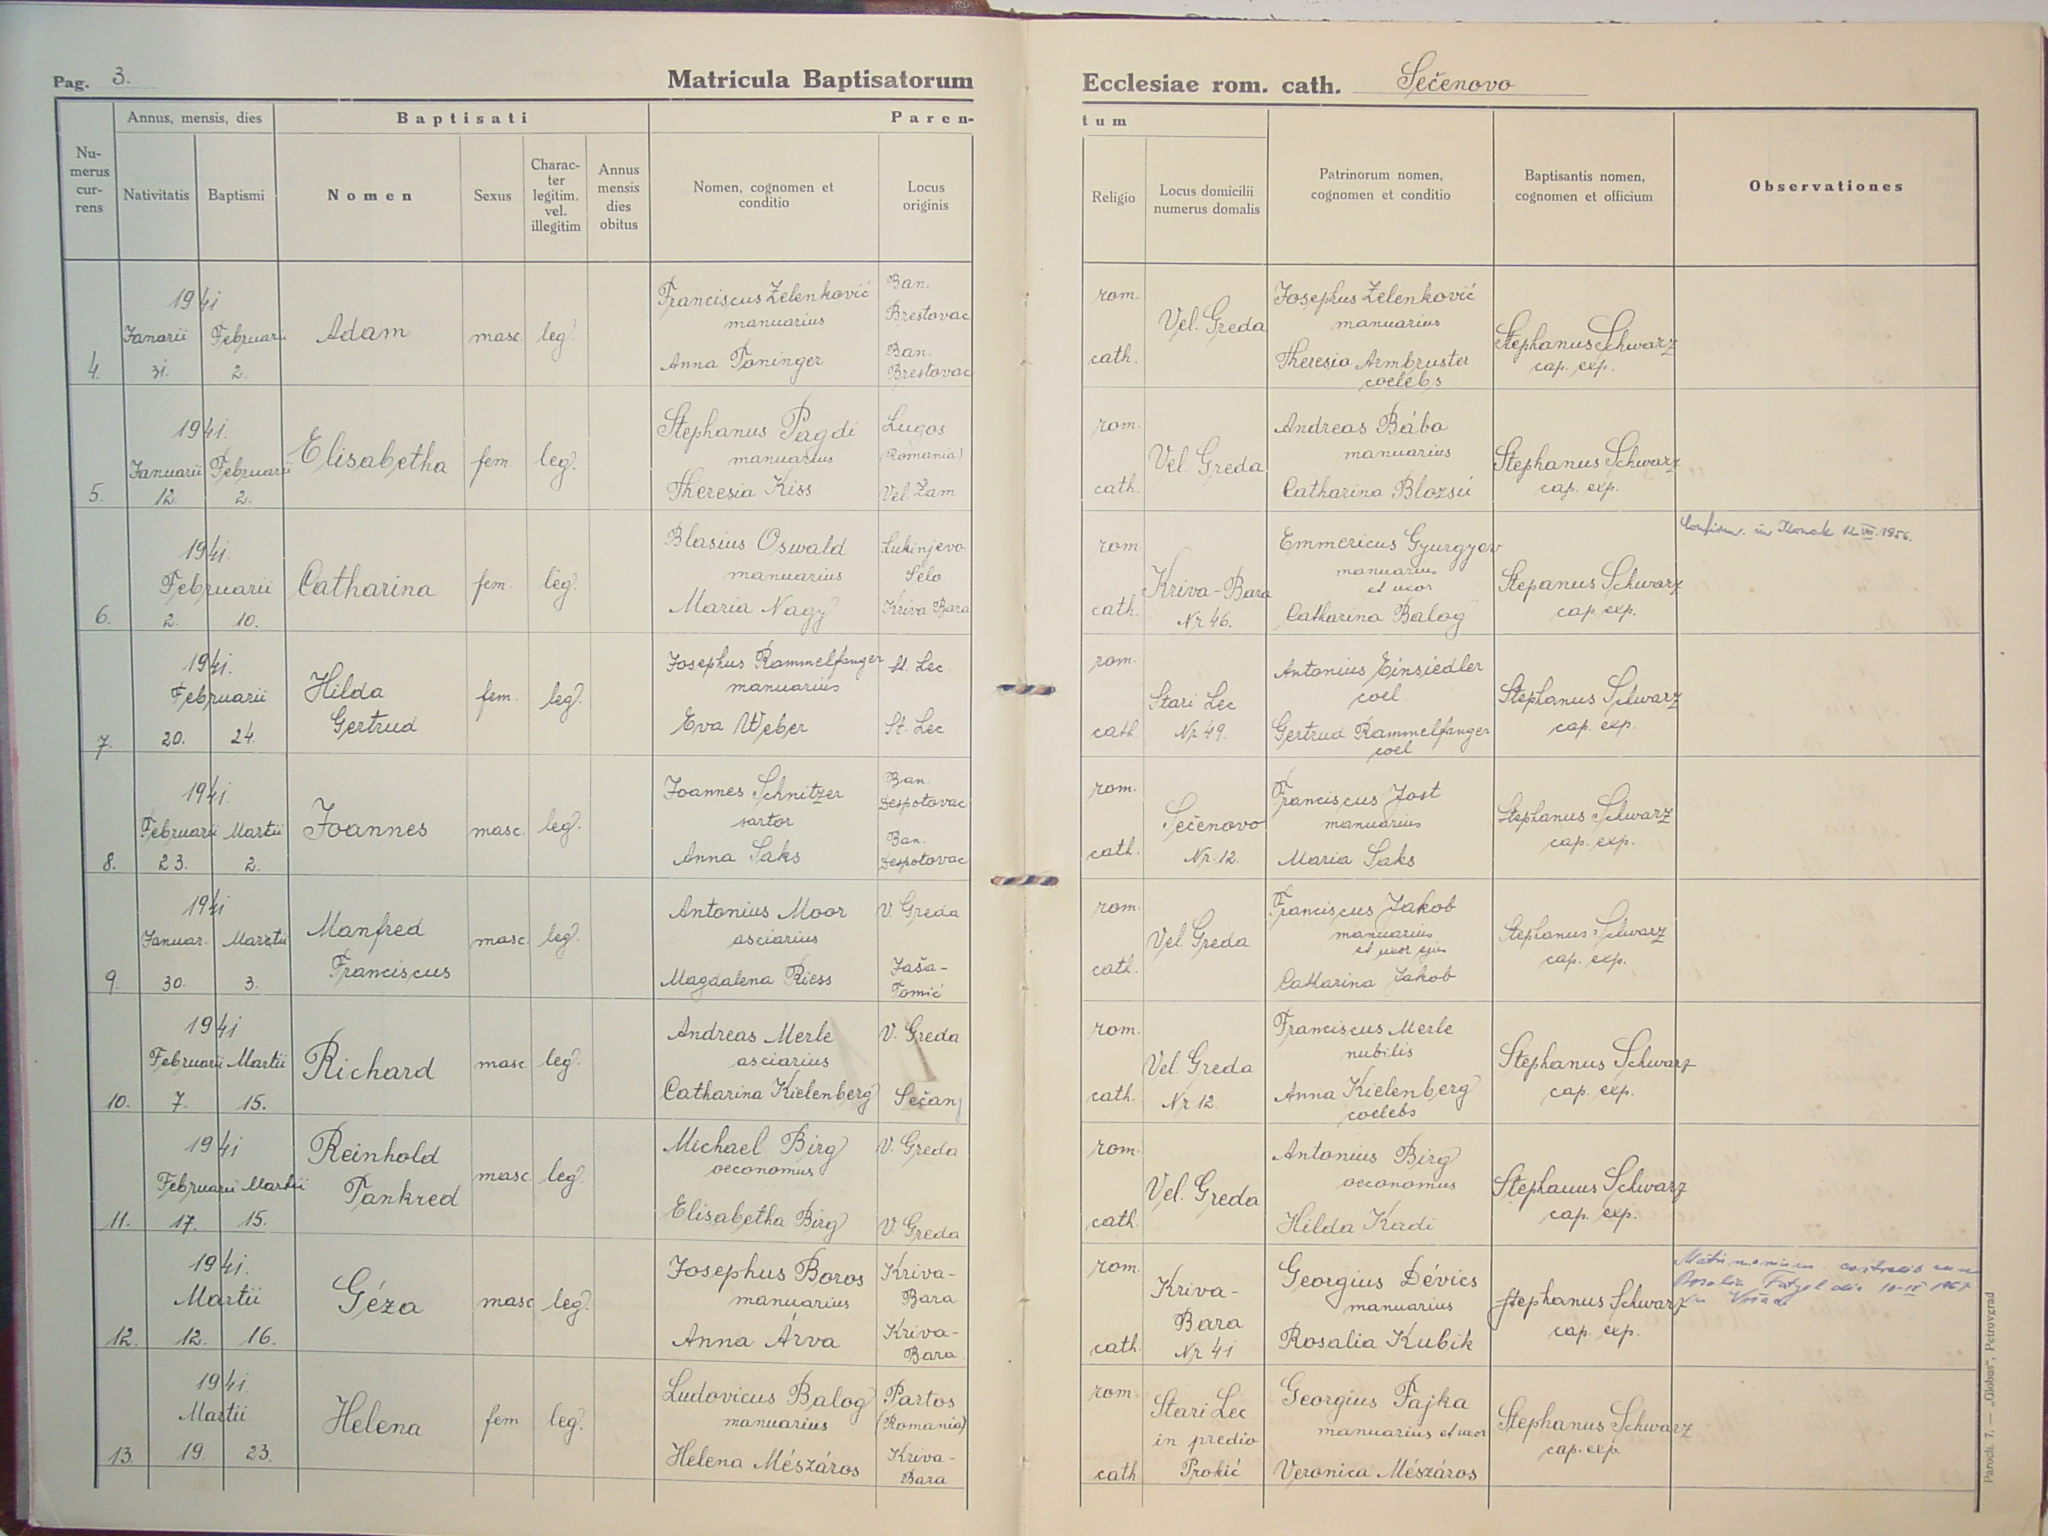 Pag. 3.
Matricula Baptisatorum
Ecclesiae rom. cath. Sečenovo
Numerus currens
Annus, mensis, dies
Nativitatis
Baptismi
Baptisati
Nomen
Sexus
Charac-
ter
legitim.
vel.
illegitim
Annus
mensis
dies
obitus
Paren-
tum
Nomen, cognomen et
conditio
Locus
originis
Religio
Locus domicilii
numerus domalis
Patrinorum nomen,
cognomen et conditio
Baptisantis nomen,
cognomen et officium
Observationes
4.
1941
Janarii Februarii
31. 2.
Adam
masc. leg.
Franciscus Zelenković
manuarius
Anna Poninger
Ban.
Brestovac
Ban.
Brestovac
rom.
cath.
Vel. Greda
Josephus Zelenković
manuarius
Theresia Armbruster
coelebs
Stephanus Schwarz
cap. exp.
5.
1941.
Januarii Februarii
12. 2.
Elisabetha
fem. leg.
Stephanus Pagdi
manuarius
Theresia Kiss
Lugos
(Romania)
Vel. Žam
rom.
cath.
Vel. Greda
Andreas Bába
manuarius
Catharina Blozsú
Stephanus Schwarz
cap. exp.
6.
1941.
Februarii
2. 10.
Catharina
fem. leg.
Blasius Oswald
manuarius
Maria Nagy
Lukinjevo
Selo
Kriva Bara
rom
cath.
Kriva-Bara
Nr 46.
Emmericus Gyurgyev
manuarius
et uxor
Catharina Balog
Stepanus Schwarz
cap. exp.
Confirm. in 12 VII. 1956.
7.
1941.
Februarii
20. 24.
Hilda
Gertrud
fem. leg.
Josephus Rammelfanger
manuarius
Eva Weber
St. Lec.
St. Lec
rom.
cath.
Stari Lec
Nr 49.
Antonius Einsiedler
coel.
Gertrud Rammelfanger
coel
Stephanus Schwarz
cap. exp.
8.
1941.
Februarii Martii
23. 2.
Joannes
masc. leg.
Joannes Schnitzer
sartor
Anna Saks
Ban.
Despotovac
Ban.
Despotovac
rom.
cath.
Sečenovo
Nr. 12.
Franciscus Jost
manuarius
Maria Saks
Stephanus Schwarz
cap. exp.
9.
1941
Januar. Martii
30. 3.
Manfred
Franciscus
masc. leg.
Antonius Moor
asciarius
Magdalena Riess
V. Greda
Jaša-
Tomić
rom.
cath.
Vel. Greda
Franciscus Jakob
manuarius
et uxor ejus
Catharina Jakob
Stephanus Schwarz
cap. exp.
10.
1941
Februarii Martii
7. 15.
Richard
masc. leg.
Andreas Merle
asciarius
Catharina Kielenberg
V. Greda
Sečanj
rom.
cath.
Vel. Greda
Nr 12.
Franciscus Merle
nubilis
Anna Kielenberg
coelebs
Stephanus Schwarz
cap. exp.
11.
1941
Februarii Martii
17. 15.
Reinhold
Tankred
masc leg.
Michael Birg
oeconomus
Elisabetha Birg
V. Greda
V. Greda
rom.
cath.
Vel. Greda
Antonius Birg
oeconomus
Hilda Kadi
Stephanus Schwarz
cap. exp.
12.
1941.
Martii
12. 16.
Géza
masc leg.
Josephus Boros
manuarius
Anna Árva
Kriva-
Bara
Kriva-
Bara
rom.
cath.
Kriva-
Bara
Nr 41
Georgius Dévics
manuarius
Rosalia Kubik
Stephanus Schwarz
cap. exp.
Matrimonium cum
Rosalia die
13.
1941.
Martii
19. 23.
Helena
fem leg.
Ludovicus Balog
manuarius
Helena Mészáros
Partos
(Romania)
Kriva-
Bara
rom.
cath
Stari Lec
in predio
Prokić
Georgius Fajka
manuarius et uxor
Veronica Mészáros
Stephanus Schwarz
cap. exp.
Paroch. 7. — „Globus“, Petrovgrad